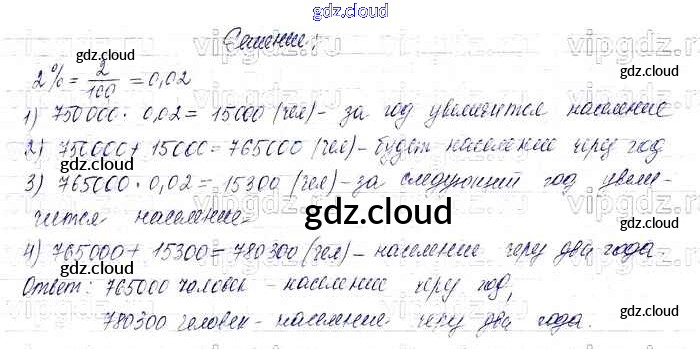 gdz.cloud
Решение:
2% = 2/100 = 0,02
1) 750000 · 0,02 = 15000 (чел) - за год увеличится население
2) 750000 + 15000 = 765000 (чел) - будет население через год
3) 765000 · 0,02 = 15300 (чел) - за следующий год увели-
чится население
gdz.cloud
4) 765000 + 15300 = 780300 (чел) - население через два года.
Ответ: 765000 человек - население через год,
780300 человек - население через два года.